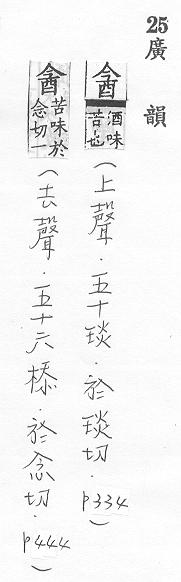 25 廣韻
酓酒味苦也(上聲.五十琰.於琰切.p334)
酓苦味於念切一(去聲.五十六㮇.於念切.p444)